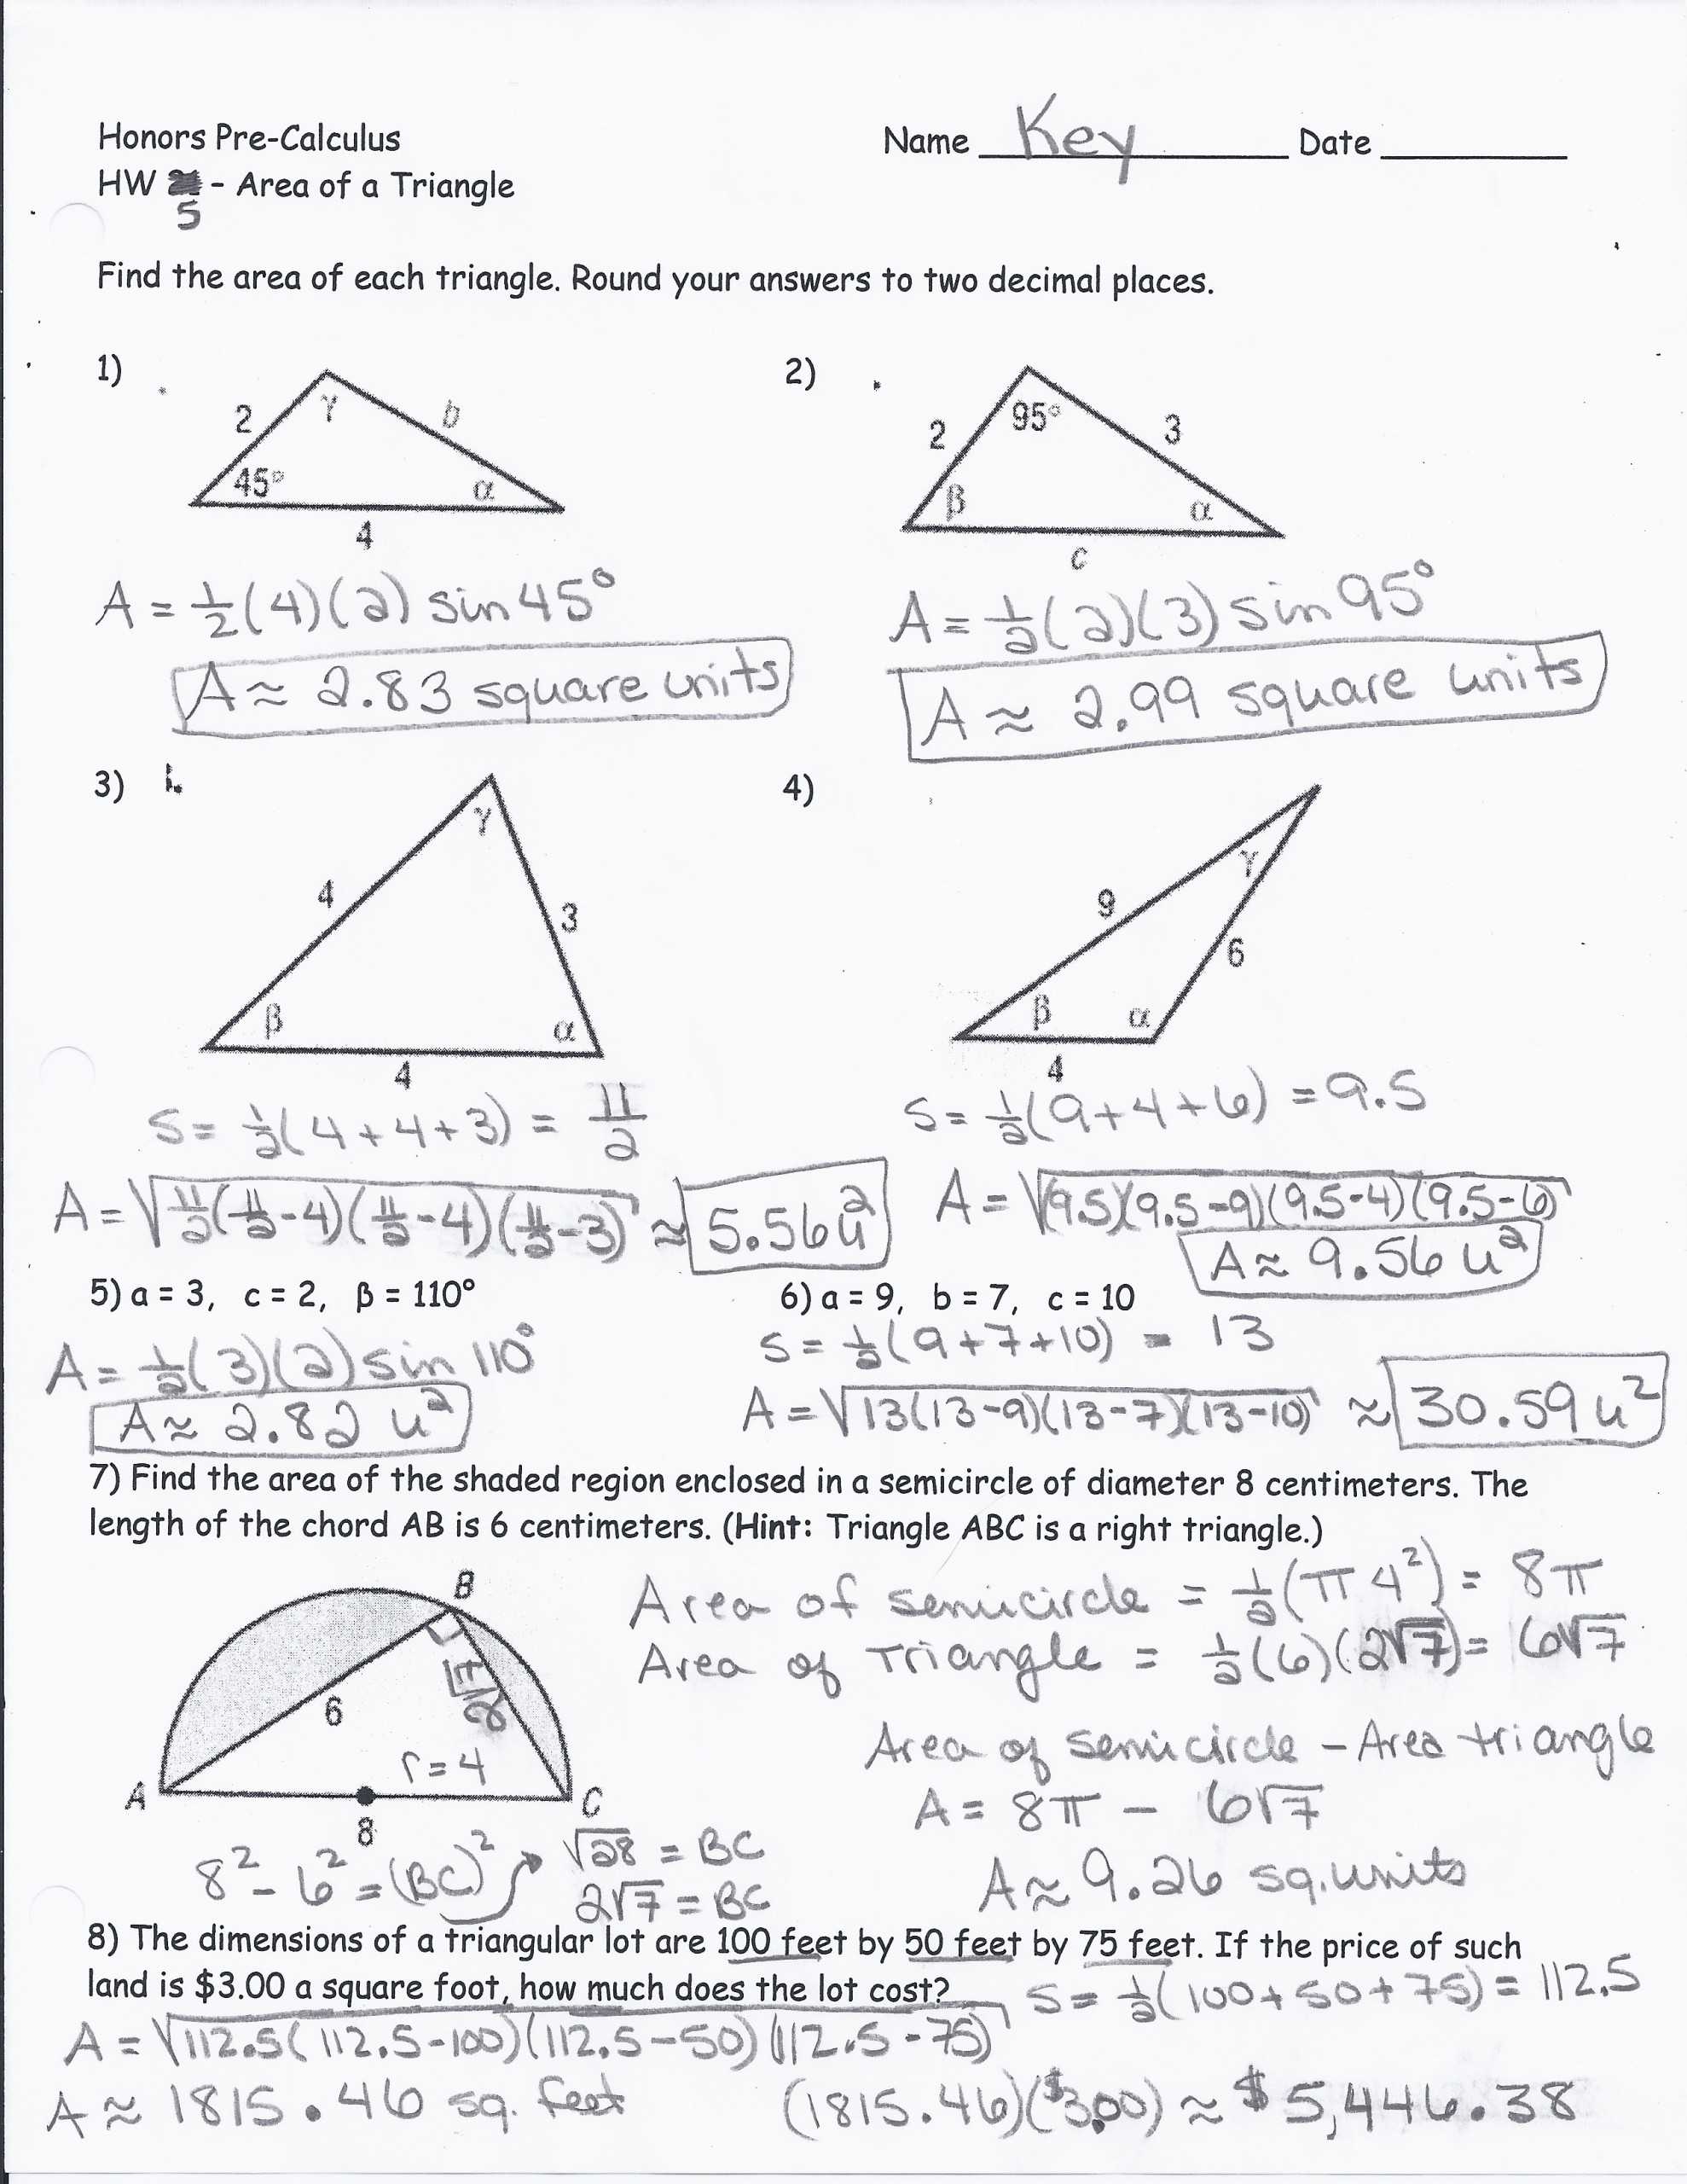 Honors Pre-Calculus
Name Key Date
HW 5 - Area of a Triangle
Find the area of each triangle. Round your answers to two decimal places.
1)
2 γ b
45° α
4
A = 1/2 (4)(2) sin 45°
A ≈ 2.83 square units
2)
2 95° 3
β α
c
A = 1/2 (2)(3) sin 95°
A ≈ 2.99 square units
3)
γ
4 3
β α
4
s = 1/2 (4 + 4 + 3) = 11/2
A = √(11/2 (11/2 - 4)(11/2 - 4)(11/2 - 3)) ≈ 5.56 u²
4)
γ
9 6
β α
4
s = 1/2 (9 + 4 + 6) = 9.5
A = √((9.5)(9.5-9)(9.5-4)(9.5-6))
A ≈ 9.56 u²
5) a = 3, c = 2, β = 110°
A = 1/2 (3)(2) sin 110°
A ≈ 2.82 u²
6) a = 9, b = 7, c = 10
s = 1/2 (9 + 7 + 10) = 13
A = √(13(13-9)(13-7)(13-10)) ≈ 30.59 u²
7) Find the area of the shaded region enclosed in a semicircle of diameter 8 centimeters. The
length of the chord AB is 6 centimeters. (Hint: Triangle ABC is a right triangle.)
B
6 2√7
r = 4
A C
8
8² - 6² = (BC)²
√28 = BC
2√7 = BC
Area of semicircle = 1/2 (π 4²) = 8π
Area of Triangle = 1/2 (6)(2√7) = 6√7
Area of semicircle - Area triangle
A = 8π - 6√7
A ≈ 9.26 sq. units
8) The dimensions of a triangular lot are 100 feet by 50 feet by 75 feet. If the price of such
land is $3.00 a square foot, how much does the lot cost?
s = 1/2 (100 + 50 + 75) = 112.5
A = √(112.5(112.5-100)(112.5-50)(112.5-75))
A ≈ 1815.46 sq. feet
(1815.46)($3.00) ≈ $5,446.38